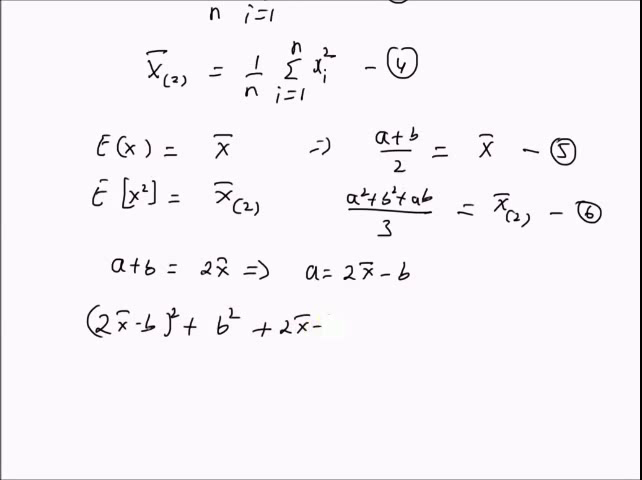 n i=1
x̄(2) = 1/n Σ(i=1 to n) xᵢ² - ④
E(x) = x̄ => (a+b)/2 = x̄ - ⑤
E[x²] = x̄(2) (a²+b²+ab)/3 = x̄(2) - ⑥
a+b = 2x̄ => a = 2x̄ - b
(2x̄-b)² + b² + 2x̄-